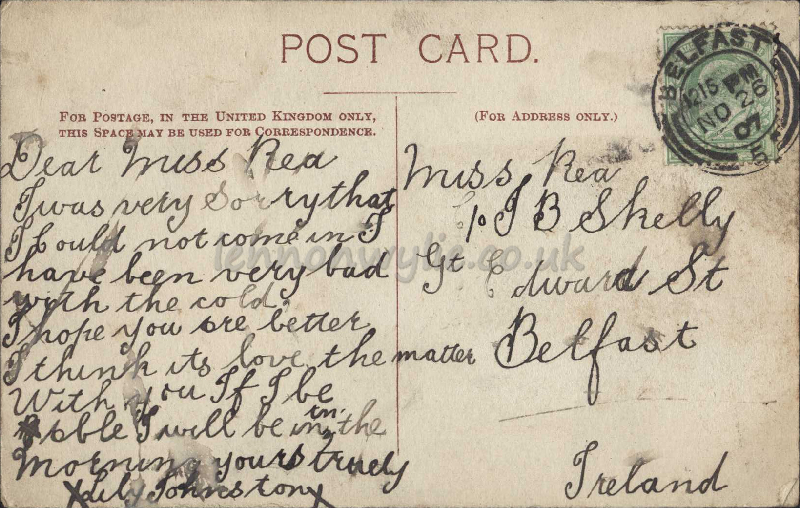 POST CARD.
FOR POSTAGE, IN THE UNITED KINGDOM ONLY,
THIS SPACE MAY BE USED FOR CORRESPONDENCE.
(FOR ADDRESS ONLY.)
BELFAST
12 15 PM
NO 26
07
5
Dear Miss Rea
I was very sorry that
I Could not come in I
have been very bad
with the cold
I hope you are better
I think its love the matter
With you If I be
able I will be in the
in
Morning yours truely
x Lily Johnston x
Miss Rea
c/o J B Skelly
Gt Edward St
Belfast
Ireland
lennonwylie.co.uk